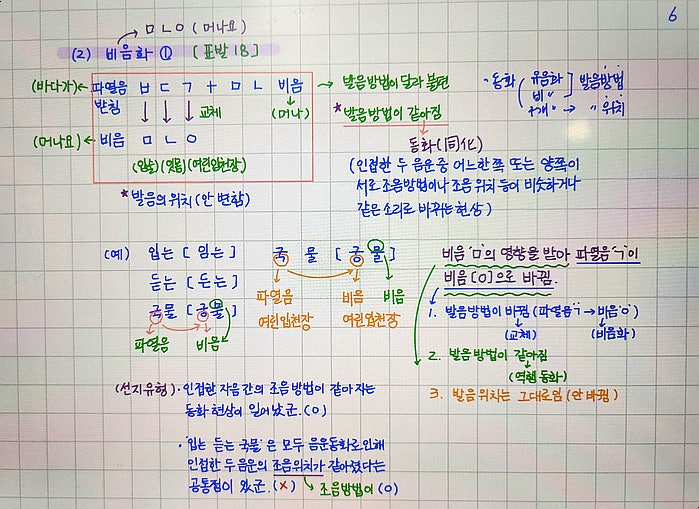 6
ㅁㄴㅇ (머나요)
(2) 비음화 ① [표발 18]
(바다가)← 파열음 ㅂ ㄷ ㄱ + ㅁ ㄴ 비음 → 발음방법이 달라 불편
받침 ↓ ↓ ↓ 교체 ↓ (머나)
(머나요)← 비음 ㅁ ㄴ ㅇ
(입술) (잇몸) (여린입천장)
* 발음의 위치 (안 변함)
* 발음방법이 같아짐
동화 (同化)
(인접한 두 음운 중 어느 한 쪽 또는 양쪽이
서로 조음방법이나 조음 위치 등이 비슷하거나
같은 소리로 바뀌는 현상)
·동화 ( 유음화 ] 발음방법
비〃 〃
구개〃 → 〃 위치
(예) 입는 [임는]
듣는 [든는]
국물 [궁물]
파열음 비음
국 물 [궁 물]
파열음 비음 비음
여린입천장 여린입천장
비음 'ㅁ'의 영향을 받아 파열음 'ㄱ'이
비음 [ㅇ]으로 바뀜.
1. 발음방법이 바뀜 (파열음 'ㄱ' → 비음 'ㅇ')
(교체) (비음화)
2. 발음 방법이 같아짐
(역행 동화)
3. 발음 위치는 그대로임 (안 바뀜)
(선지유형) · 인접한 자음 간의 조음 방법이 같아지는
동화 현상이 일어났군. (O)
· '입는 듣는 국물'은 모두 음운동화로 인해
인접한 두 음운의 조음위치가 같아졌다는
공통점이 있군. (X) 조음방법이 (O)